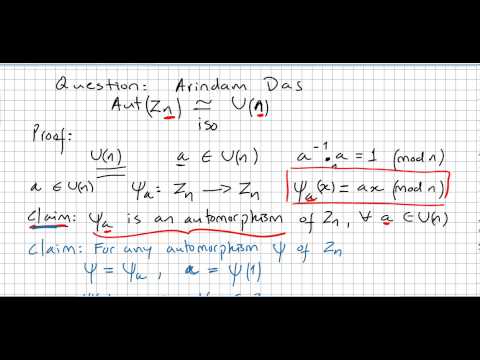 Question: Arindam Das
Aut(Zn) ≅ U(n)
iso
Proof:
U(n) a ∈ U(n) a⁻¹·a = 1 (mod n)
a ∈ U(n) ψₐ: Zn → Zn ψₐ(x) = ax (mod n)
Claim: ψₐ is an automorphism of Zn, ∀ a ∈ U(n)
Claim: For any automorphism ψ of Zn
ψ = ψₐ, a = ψ(1)